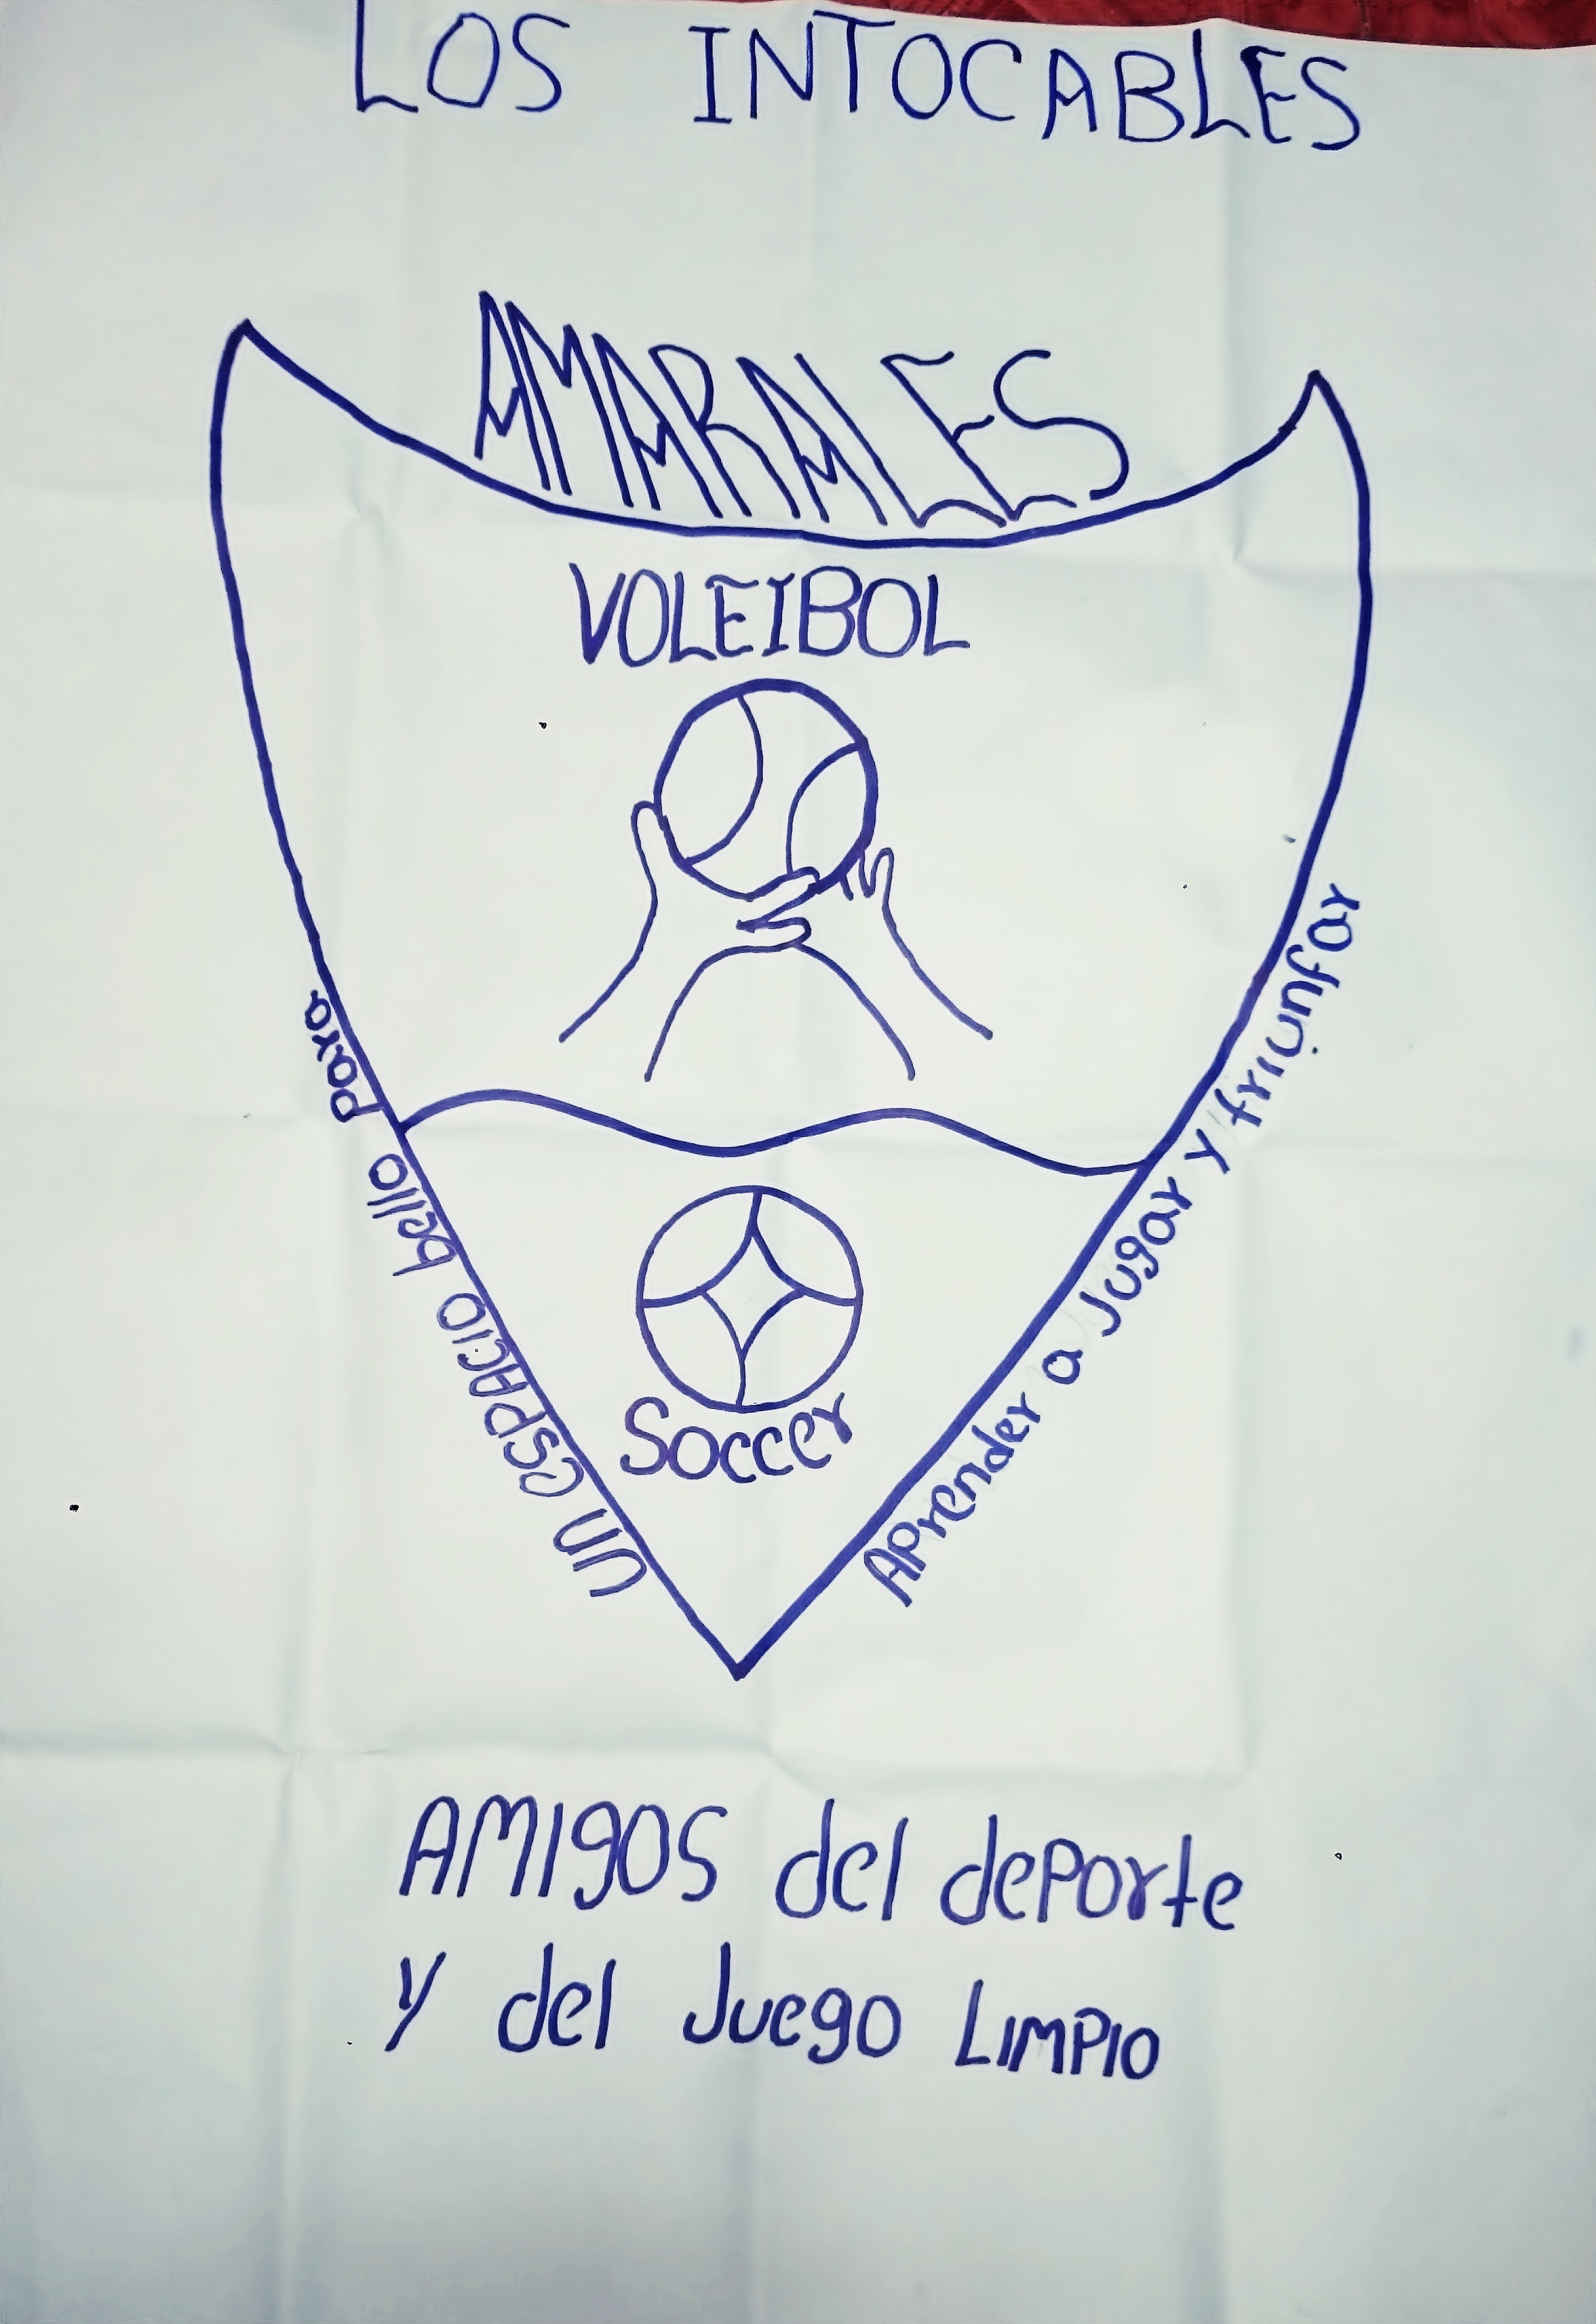 LOS INTOCABLES
AMARALES
VOLEIBOL
Soccer
UN esPAcio bello Para
APrender a Jugar y triunfar
AMIgOS del dePorte
y del Juego LIMPIO